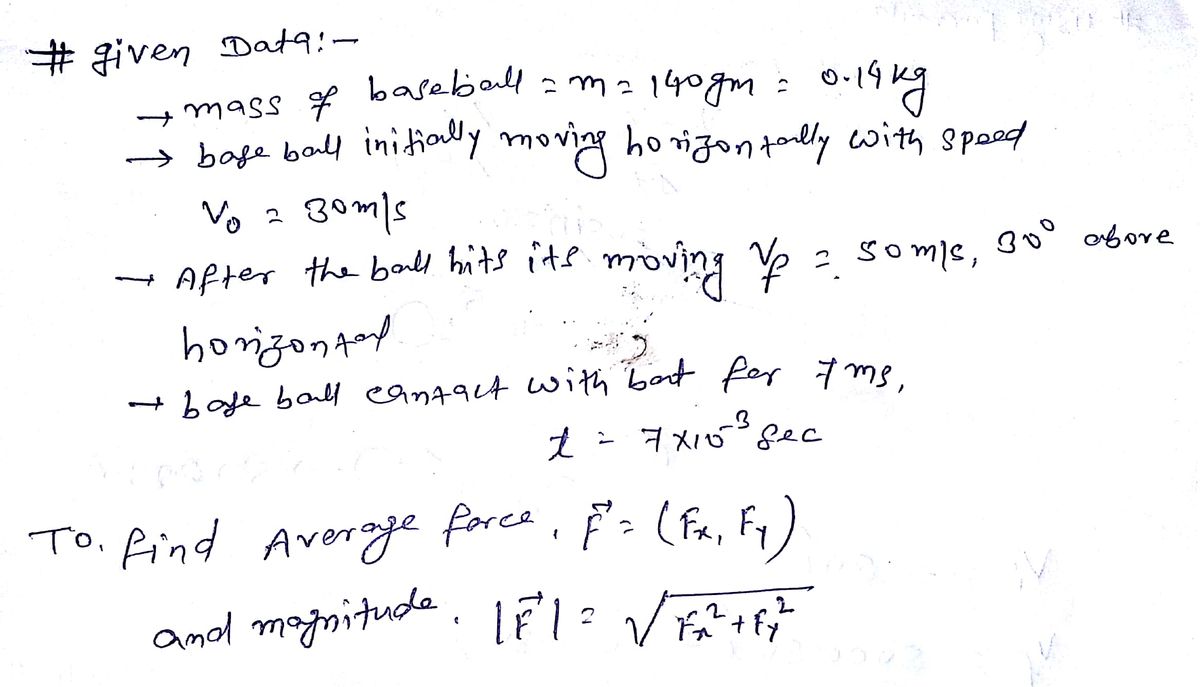 # given Data:-
→ mass of baseball = m = 140gm = 0.14kg
→ base ball initially moving horizontally with speed
V₀ = 30m/s
→ After the ball hits its moving Vf = 50m/s, 30° above
horizontal
→ base ball contact with bat for 7ms,
t = 7×10⁻³ sec
To. find Average force, F⃗ = (Fx, Fy)
and magnitude. |F⃗| = √Fx²+Fy²